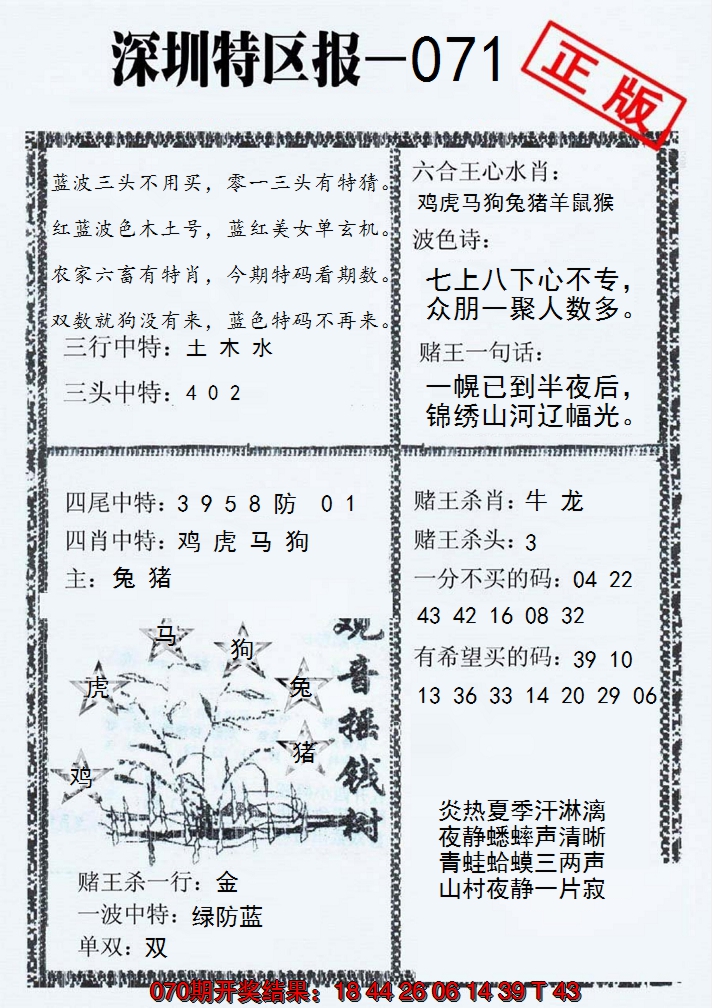 深圳特区报—071
正版
蓝波三头不用买，零一三头有特猜。
红蓝波色木土号，蓝红美女单玄机。
农家六畜有特肖，今期特码看期数。
双数就狗没有来，蓝色特码不再来。
三行中特：土 木 水
三头中特：4 0 2
六合王心水肖：
鸡虎马狗兔猪羊鼠猴
波色诗：
七上八下心不专，
众朋一聚人数多。
赌王一句话：
一幌已到半夜后，
锦绣山河辽幅光。
四尾中特：3 9 5 8 防 0 1
四肖中特：鸡 虎 马 狗
主：兔 猪
赌王杀肖：牛 龙
赌王杀头：3
一分不买的码：04 22
43 42 16 08 32
有希望买的码：39 10
13 36 33 14 20 29 06
观音摇钱树
马
狗
虎
兔
猪
鸡
炎热夏季汗淋漓
夜静蟋蟀声清晰
青蛙蛤蟆三两声
山村夜静一片寂
赌王杀一行：金
一波中特：绿防蓝
单双：双
070期开奖结果：18 44 26 06 14 39 T 43